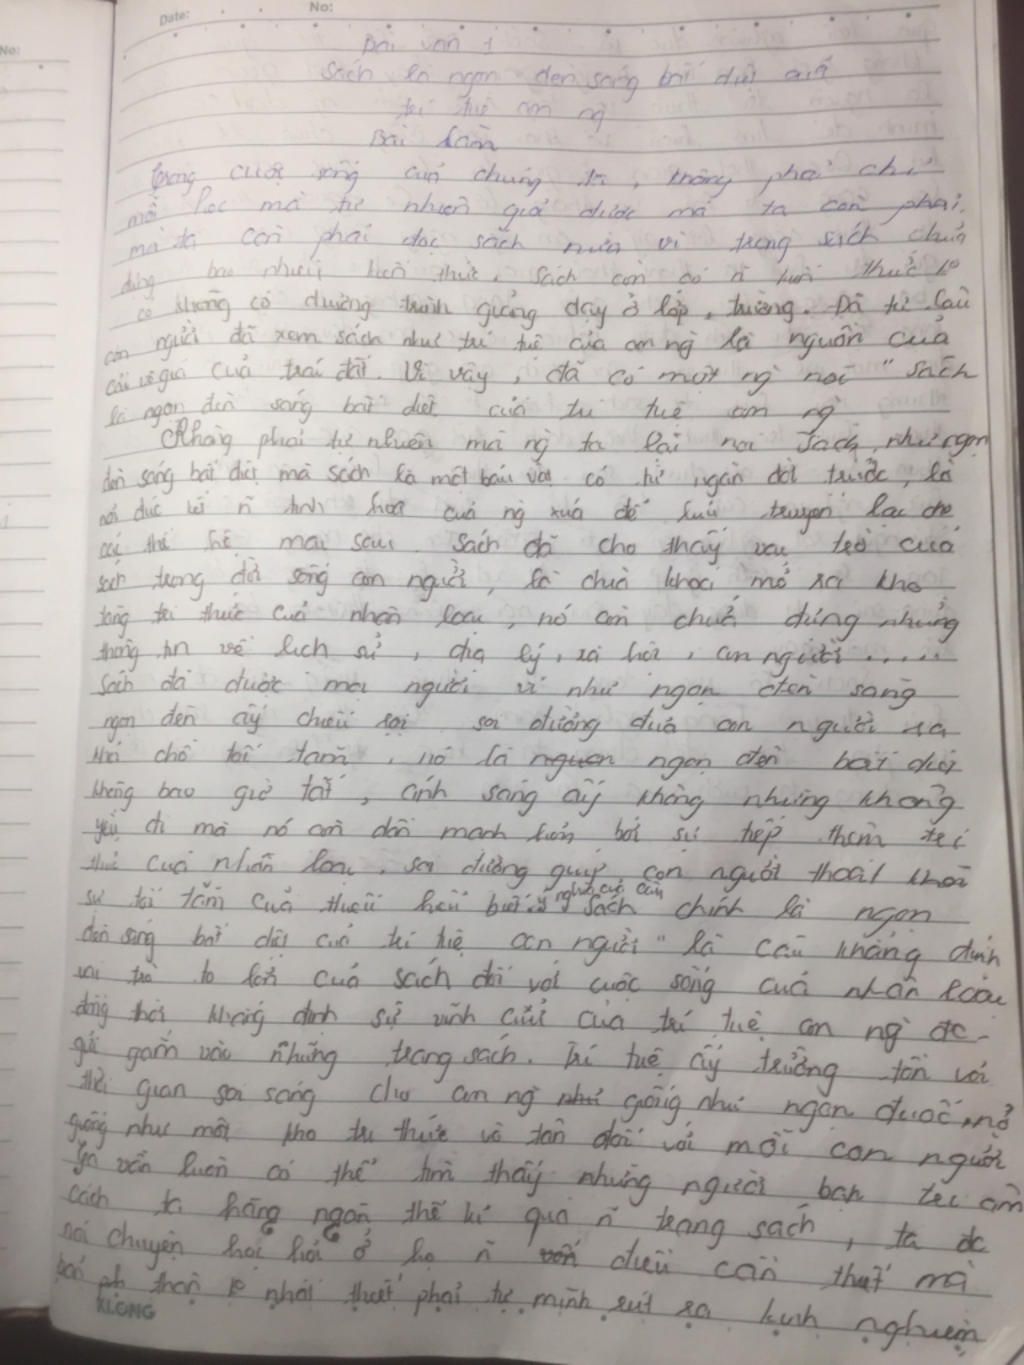 Date: No:
No:
Bài văn 1
Sách là ngọn đèn sáng bất diệt của
trí tuệ con ng
Bài làm
Trong cuộc sống của chúng ta, không phải chỉ
mỗi học mà tự nhiên giỏi được mà ta còn phải
mà ta còn phải đọc sách nữa vì trong sách chứa
đựng bao nhiêu kiến thức, sách còn có n kiến thức
có không có chương trình giảng dạy ở lớp, trường. Đã từ lâu
con người đã xem sách như trí tuệ của con ng là nguồn của
cải vô giá của trái đất. Vì vậy, đã có một ng nói "Sách
là ngọn đèn sáng bất diệt của trí tuệ con ng
Không phải tự nhiên mà ng ta lại nói sách như ngọn
đèn sáng bất diệt mà sách là một báu vật có từ ngàn đời trước, là
nơi đúc kết n tinh hoa của ng xưa để lưu truyền lại cho
các thế hệ mai sau. Sách đã cho thấy vai trò của
sách trong đời sống con người, là chìa khoá mở ra kho
tàng tri thức của nhân loại, nó còn chứa đựng những
thông tin về lịch sử, địa lý, xã hội, con người .....
Sách đã được mọi người ví như ngọn đèn sáng
ngọn đèn ấy chiếu rọi soi đường đưa con người ra
khỏi chỗ tối tăm, nó là nguon ngọn đèn bất diệt
không bao giờ tắt, ánh sáng ấy không những không
yếu đi mà nó còn dần mạnh hơn bởi sự tiếp thêm tri
thức của nhân loại, soi đường giúp con người thoát khỏi
sự tối tăm của thiếu hiểu biết. ý nghĩa của câu "sách chính là ngọn
đèn sáng bất diệt của trí tuệ con người" là câu khẳng định
vai trò to lớn của sách đối với cuộc sống của nhân loại
đồng thời khẳng định sự vĩnh cửu của trí tuệ con ng đc
gửi gắm vào những trang sách. Trí tuệ ấy trường tồn với
thời gian soi sáng cho con ng như giống như ngọn đuốc, nó
giống như một kho tri thức vô tận đối với mỗi con người
ta vẫn luôn có thể tìm thấy những người bạn tri âm
cách ta hàng ngàn thế kỉ qua n trang sách, ta đc
nói chuyện học hỏi ở họ n điều cần thiết mà
bản thân k nhất thiết phải tự mình rút ra kinh nghiệm
KLONG